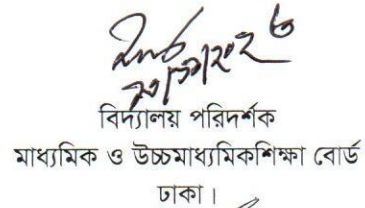 বিদ্যালয় পরিদর্শক
মাধ্যমিক ও উচ্চমাধ্যমিকশিক্ষা বোর্ড
ঢাকা।